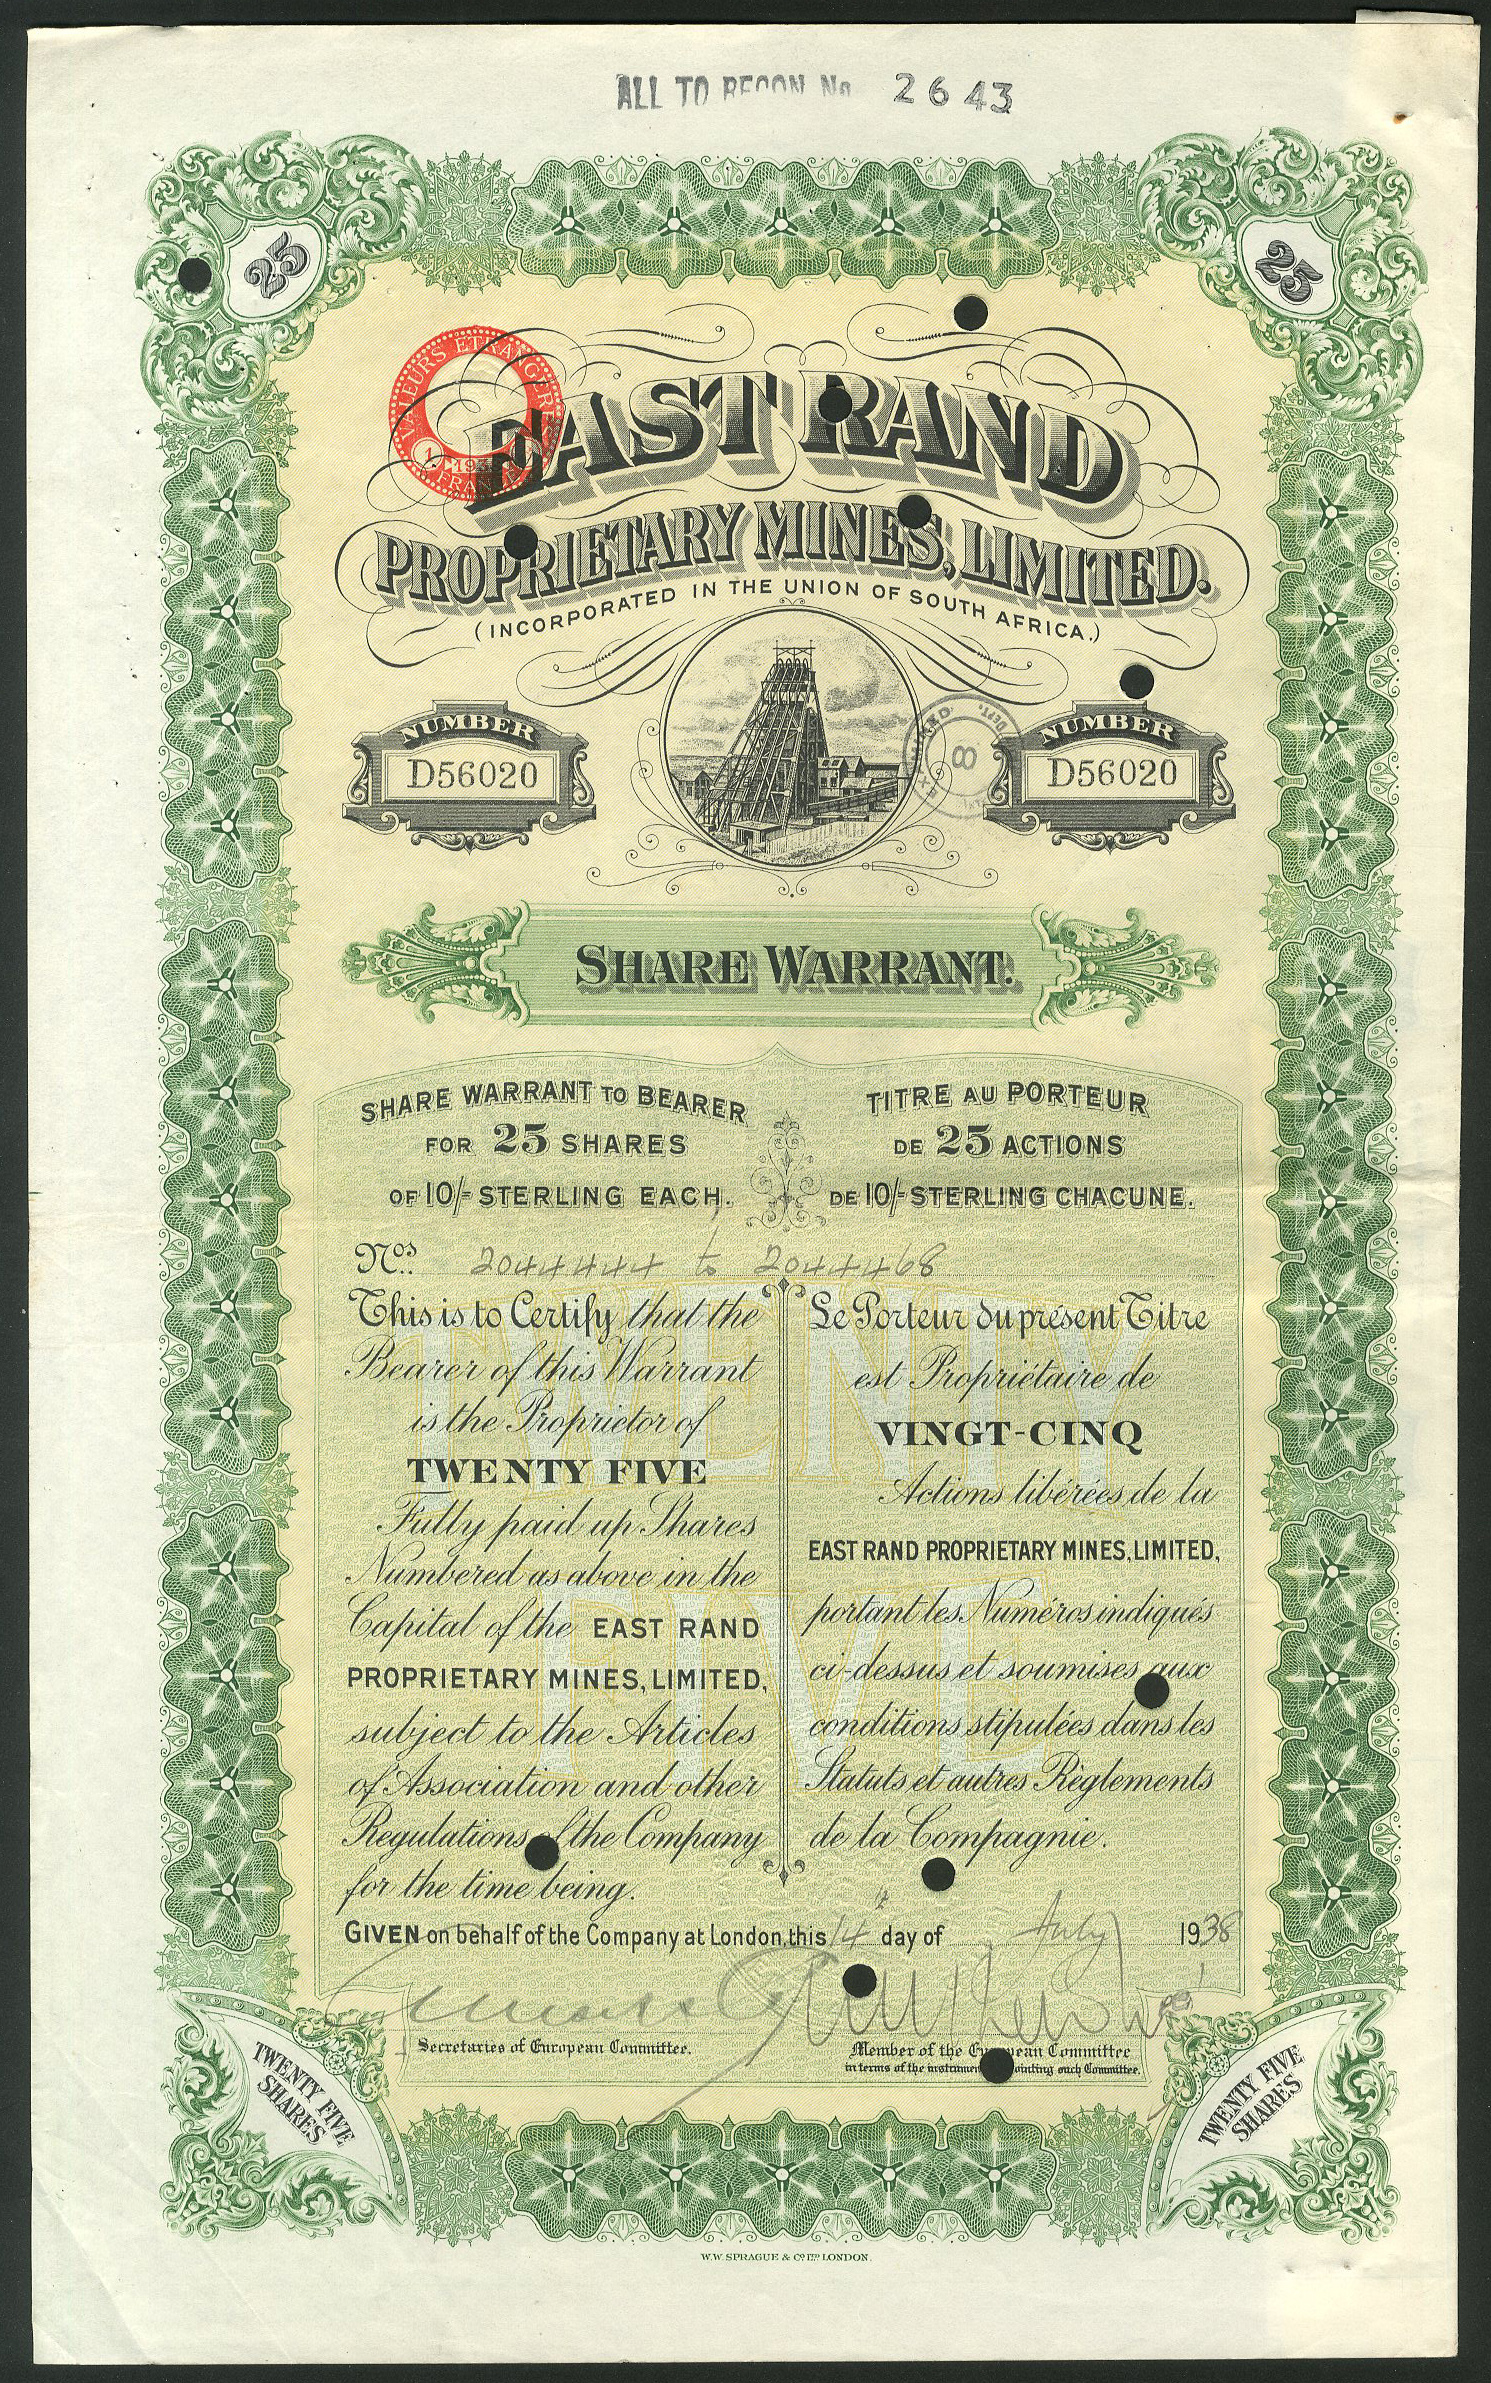 ALL TO RECON No 2643
25
25
VALEURS ETRANGERES
FRANCE
EAST RAND
PROPRIETARY MINES, LIMITED.
(INCORPORATED IN THE UNION OF SOUTH AFRICA.)
NUMBER
D56020
8
NUMBER
D56020
SHARE WARRANT.
SHARE WARRANT TO BEARER
FOR 25 SHARES
OF 10/- STERLING EACH.
TITRE AU PORTEUR
DE 25 ACTIONS
DE 10/- STERLING CHACUNE.
Nos. 2044444 to 2044468
This is to Certify that the
Bearer of this Warrant
is the Proprietor of
TWENTY FIVE
Fully paid up Shares
Numbered as above in the
Capital of the EAST RAND
PROPRIETARY MINES, LIMITED,
subject to the Articles
of Association and other
Regulations of the Company
for the time being.
Le Porteur du présent Titre
est Propriétaire de
VINGT-CINQ
Actions libérées de la
EAST RAND PROPRIETARY MINES, LIMITED,
portant les Numéros indiqués
ci-dessus et soumises aux
conditions stipulées dans les
Statuts et autres Règlements
de la Compagnie.
TWENTY
FIVE
GIVEN on behalf of the Company at London, this 14th day of July 1938
Secretaries of European Committee.
Member of the European Committee
in terms of the instrument appointing such Committee.
TWENTY FIVE
SHARES
TWENTY FIVE
SHARES
W.W. SPRAGUE & CO. LTD. LONDON.